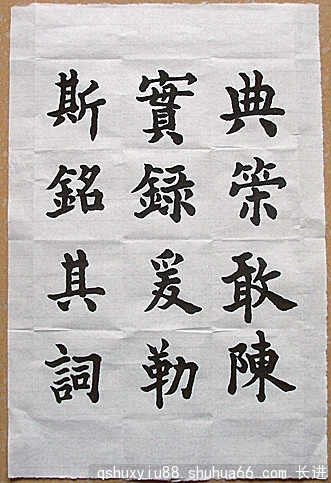 典策敢陳
實録爰勒
斯銘其詞
qshuxyiu88 shuhua66.com 长进